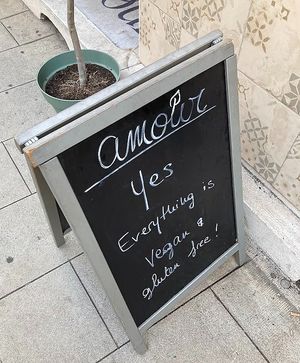 amour
Yes
Everything is
Vegan &
gluten free!